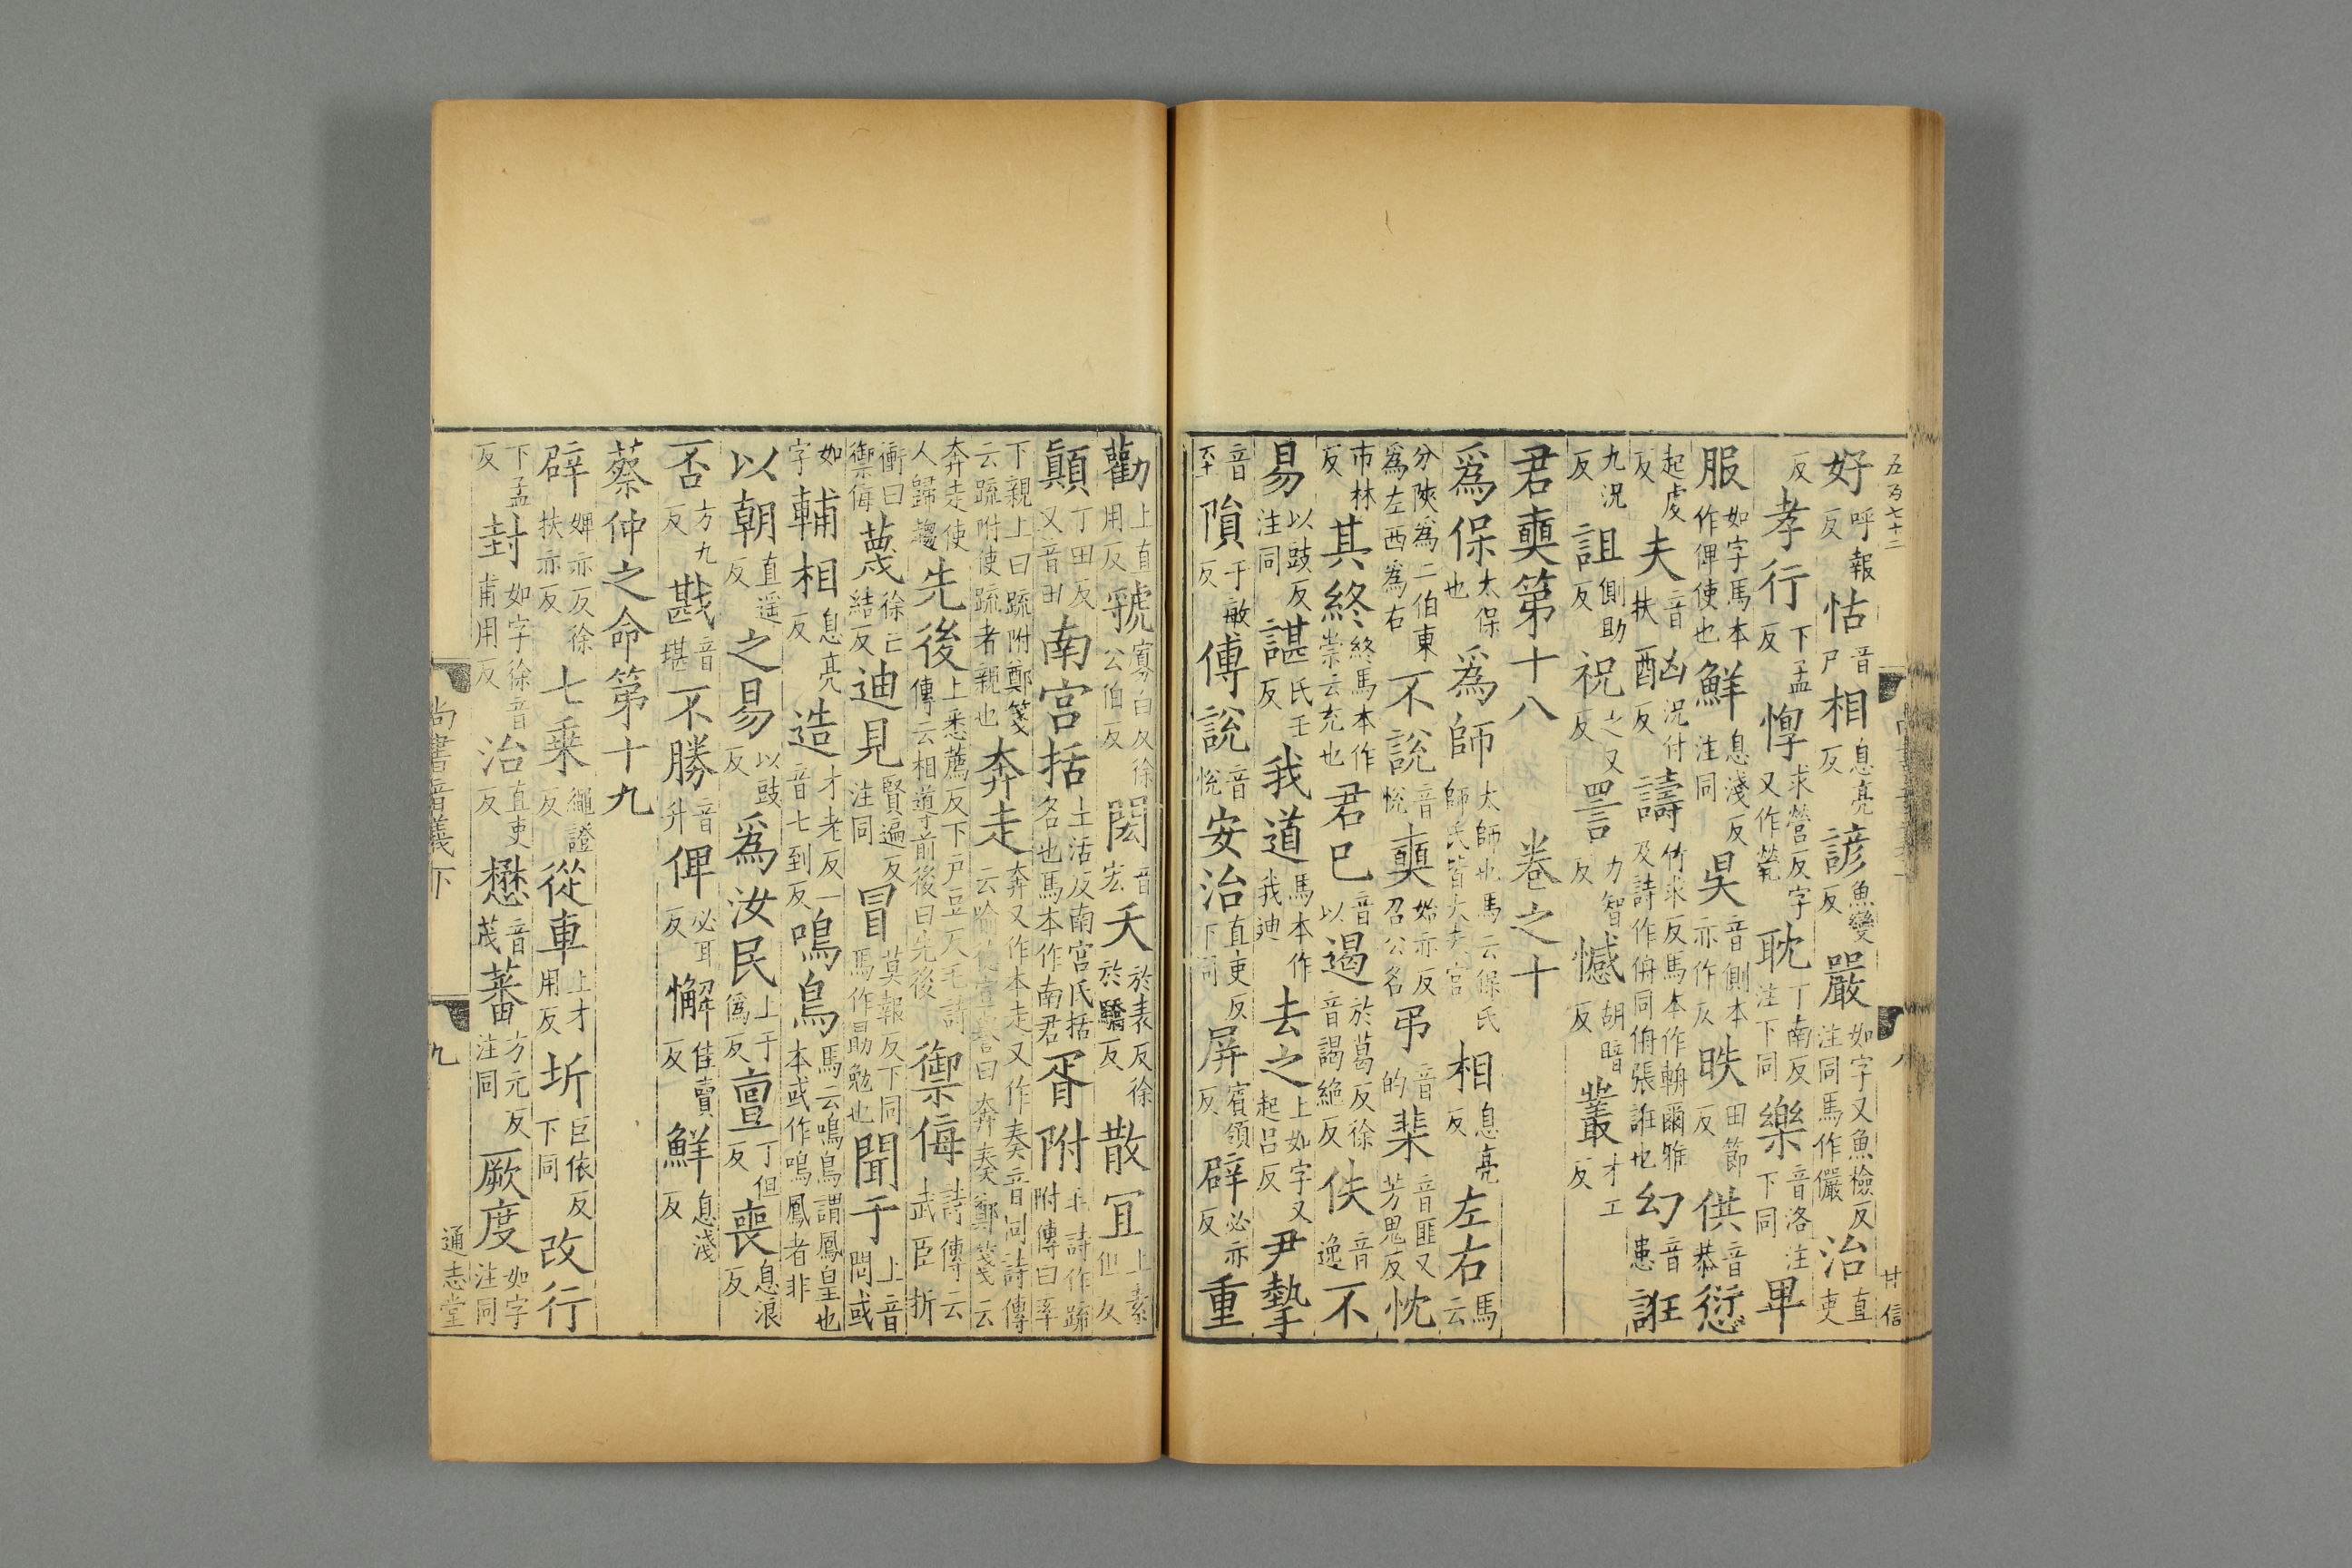 五百七十二
好呼報反怙音戶相息亮反諺魚變反嚴如字又魚檢反注同馬作儼治直吏
反孝行下孟反惸求營反字又作煢耽丁南反注下同樂音洛注下同畢
服如字馬本作俾使也鮮息淺反注同昃音側本亦作仄昳田節反供音恭愆
起虔反夫音扶酗況付反譸竹求反馬本作輈爾雅及詩作侜同侜張誑也幻音患誑
九況反詛側助反祝之又反詈力智反憾胡暗反叢才工反
君奭第十八 卷之十
爲保太保也爲師太師也馬云保氏師氏皆大夫官相息亮反左右馬云
分陝爲二伯東爲左西爲右不說音悅奭始亦反召公名弔音的棐音匪又芳鬼反忱
市林反其終終馬本作崇云充也君已音以遏於葛反徐音謁絕反佚音逸不
易以豉反注同諶氏壬反我道馬本作我迪去之上如字又起呂反尹摯
音至隕于敏反傅說音悅安治直吏反下同屏賓領反辟必亦反重
甘信
八
勸上直用反虢寡白反徐公伯反閎音宏夭於表反徐於驕反散宜上素但反
顛丁田反又音田南宮括土活反南宮氏括名也馬本作南君胥附毛詩作疏附傳曰率
下親上曰疏附鄭箋云疏附使疏者親也奔走奔又作本走又作奏音同詩傳云喻德宣譽曰奔奏鄭箋云
奔走使人歸趨先後上悉薦反下戶豆反毛詩傳云相道前後曰先後禦侮詩傳云武臣折
衝曰禦侮蔑徐亡結反迪見賢遍反注同冒莫報反下同馬作勖勉也聞于上音問或
如字輔相息亮反造才老反一音七到反鳴鳥馬云鳴鳥謂鳳皇也本或作鳴鳳者非
以朝直遥反之易以豉反爲汝民上于僞反亶丁但反喪息浪反
否方九反戡音堪不勝音升俾必耳反懈佳賣反鮮息淺反
蔡仲之命第十九
辟婢亦反徐扶亦反七乘繩證反從車上才用反圻巨依反下同改行
下孟反封如字徐音甫用反治直吏反懋音茂蕃方元反注同厥度如字注同
尚書音義下
九
通志堂